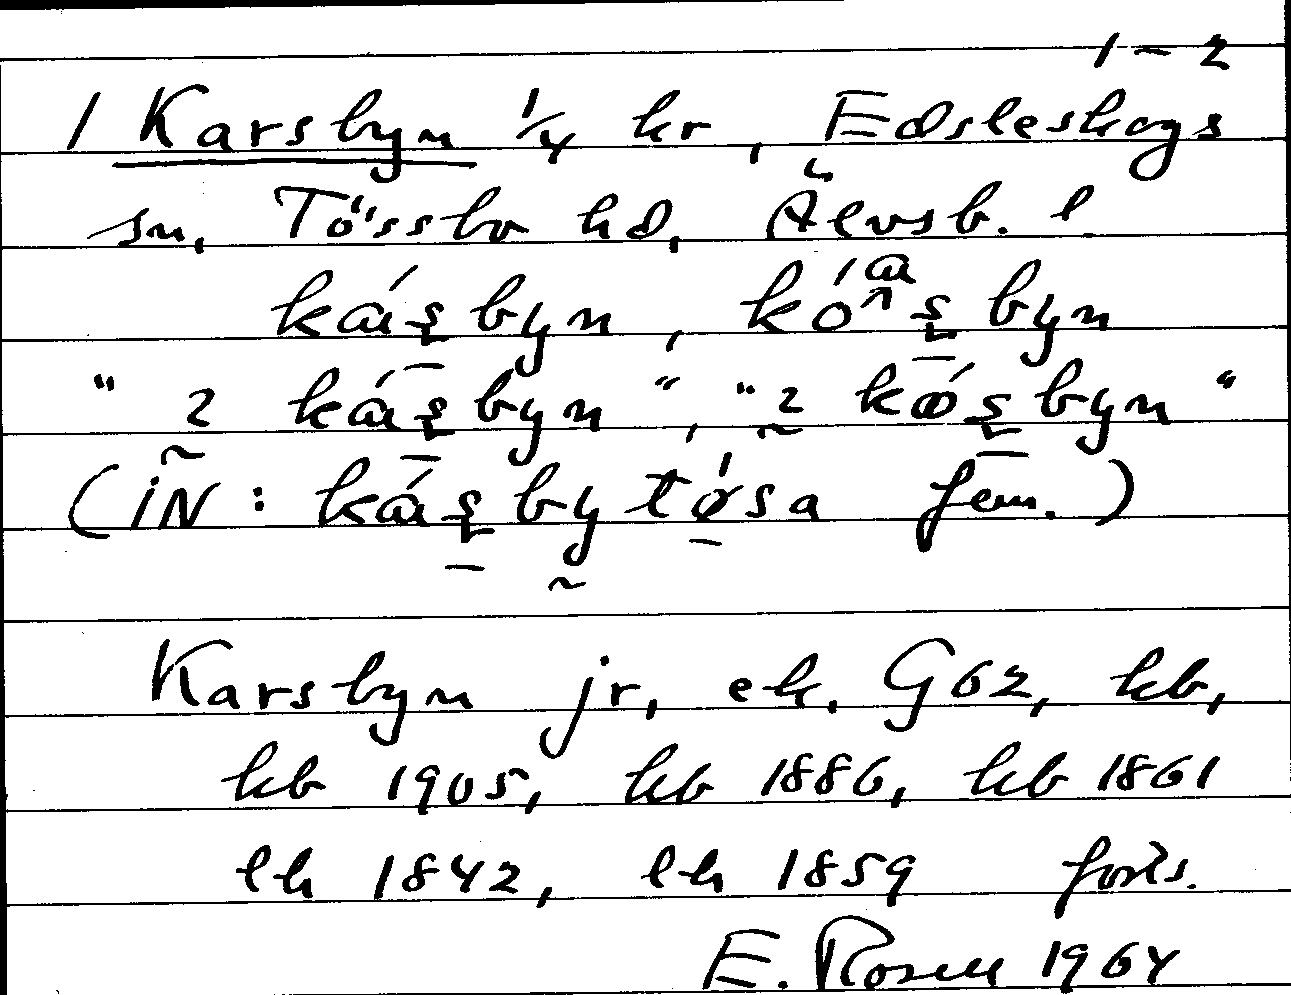 1-2
1 Karsbyn 1/4 kr, Edsleskogs
sn, Tössbo hd, Älvsb. l
káşbyn, kóaşbyn
"2 káşbyn", "2 kǿşbyn"
(iN: káşbytø'sa fem.)
Karsbyn jr, ek. G62, kb,
kb 1905, kb 1886, kb 1861
lh 1842, lh 1859 forts.
E. Rosell 1964